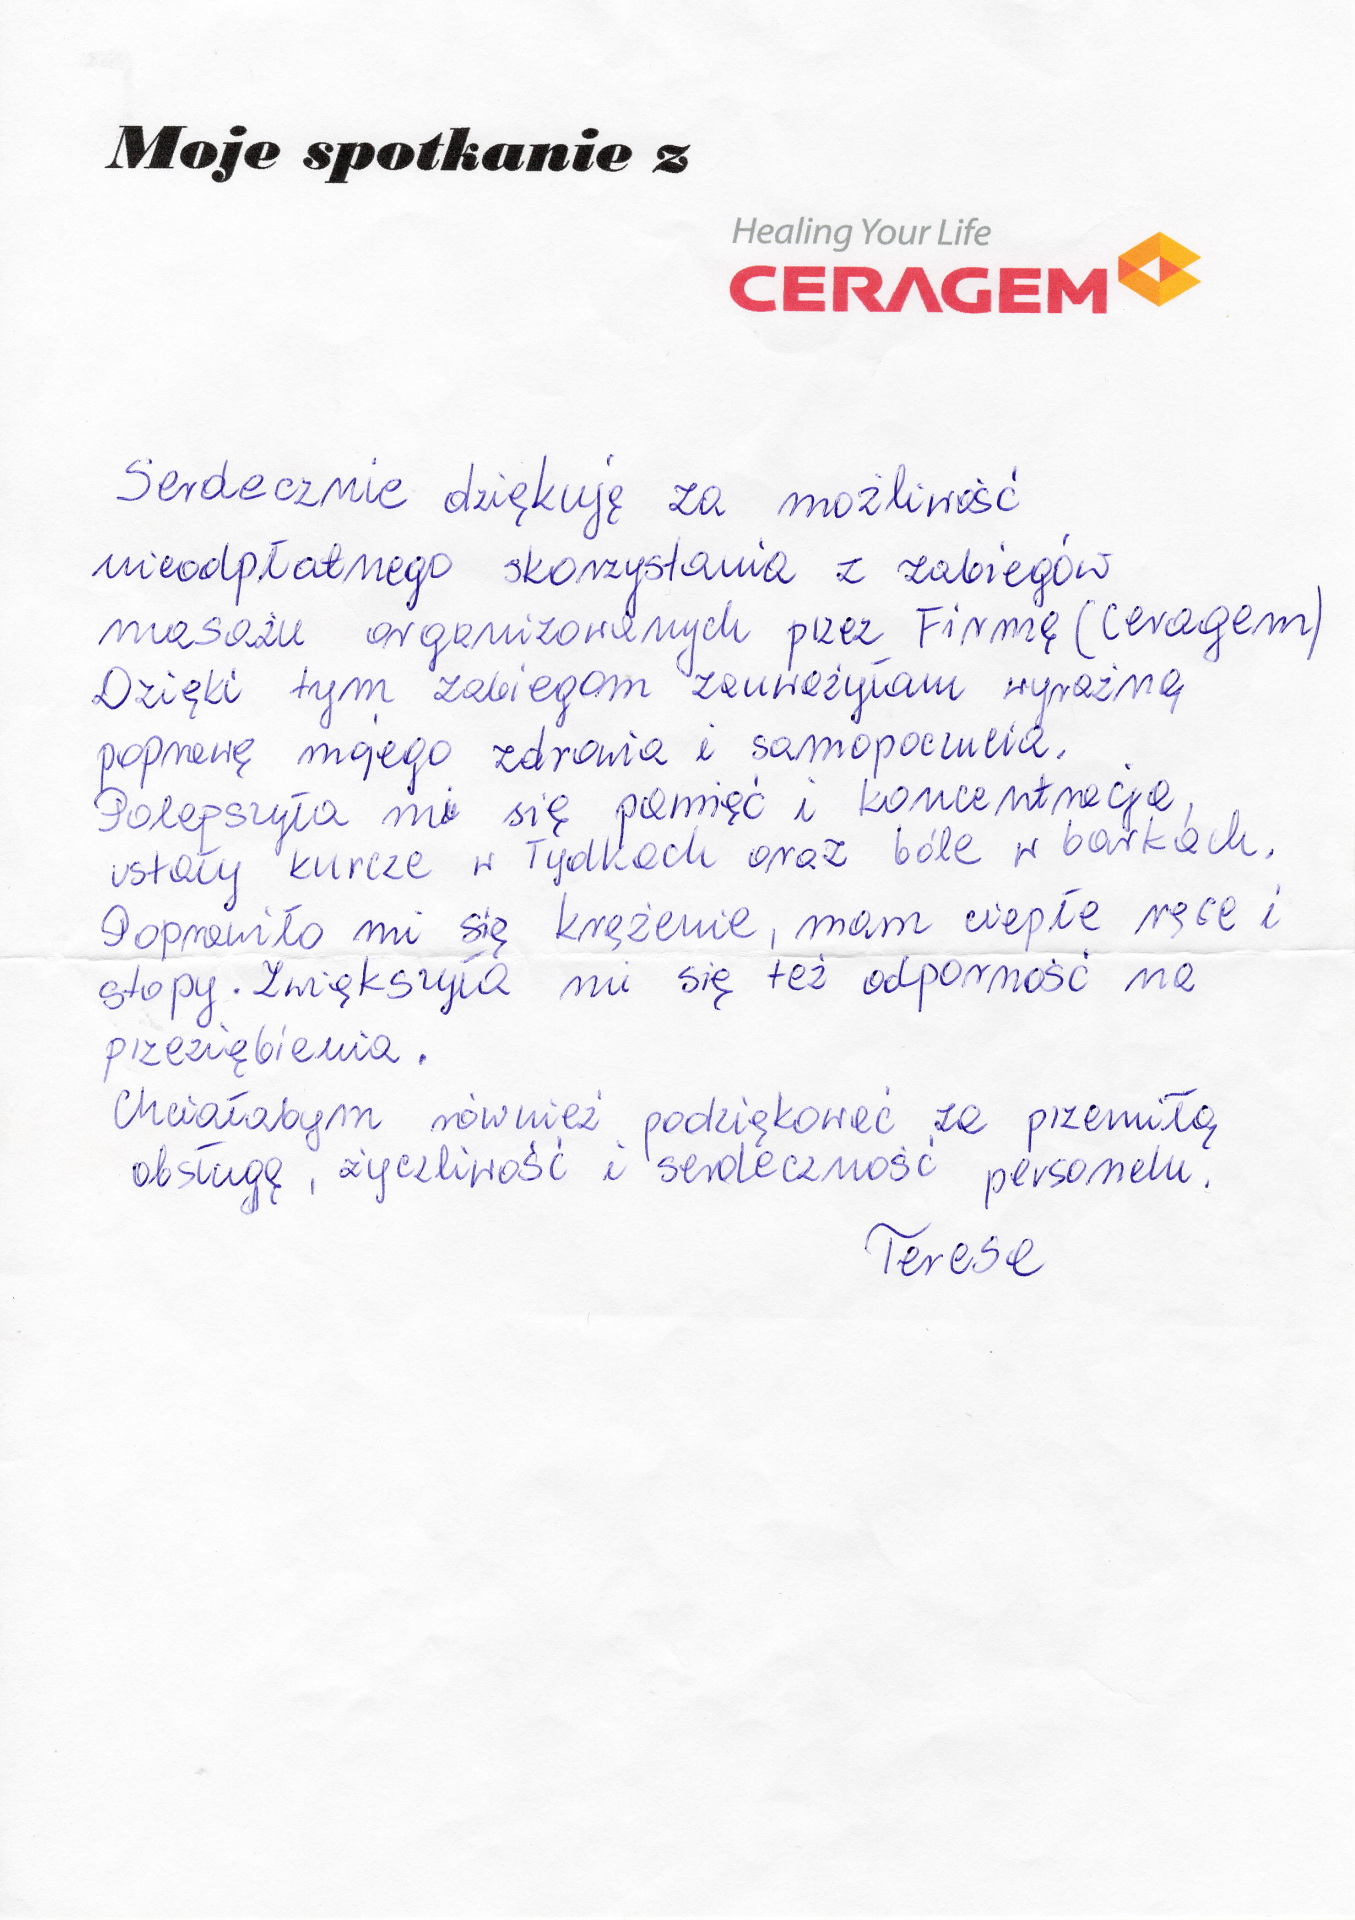 Moje spotkanie z
Healing Your Life
CERAGEM
Serdecznie dziękuję za możliwość
nieodpłatnego skorzystania z zabiegów
masażu organizowanych przez Firmę (Ceragem)
Dzięki tym zabiegom zauważyłam wyraźną
poprawę mojego zdrowia i samopoczucia.
Polepszyła mi się pamięć i koncentracja,
ustały kurcze w łydkach oraz bóle w barkach.
Poprawiło mi się krążenie, mam ciepłe ręce i
stopy. Zwiększyła mi się też odporność na
przeziębienia.
Chciałabym również podziękować za przemiłą
obsługę, życzliwość i serdeczność personelu.
Teresa